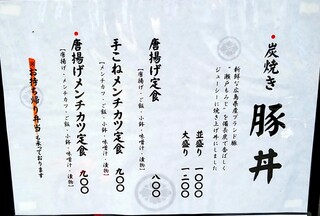 炭焼き 豚丼
新鮮な広島県産ブランド豚
"瀬戸もみじ"を備長炭で香ばしく
ジューシーに焼き上げ丼にしました
並盛り 一〇〇〇
大盛り 一二〇〇
唐揚げ定食 八〇〇
【唐揚げ・ご飯・小鉢・味噌汁・漬物】
手こねメンチカツ定食 九〇〇
【メンチカツ・ご飯・小鉢・味噌汁・漬物】
唐揚げメンチカツ定食 九〇〇
【唐揚げ・メンチカツ・ご飯・小鉢・味噌汁・漬物】
お持ち帰り弁当も承っております